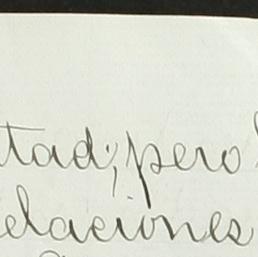 tad; pero
elaciones